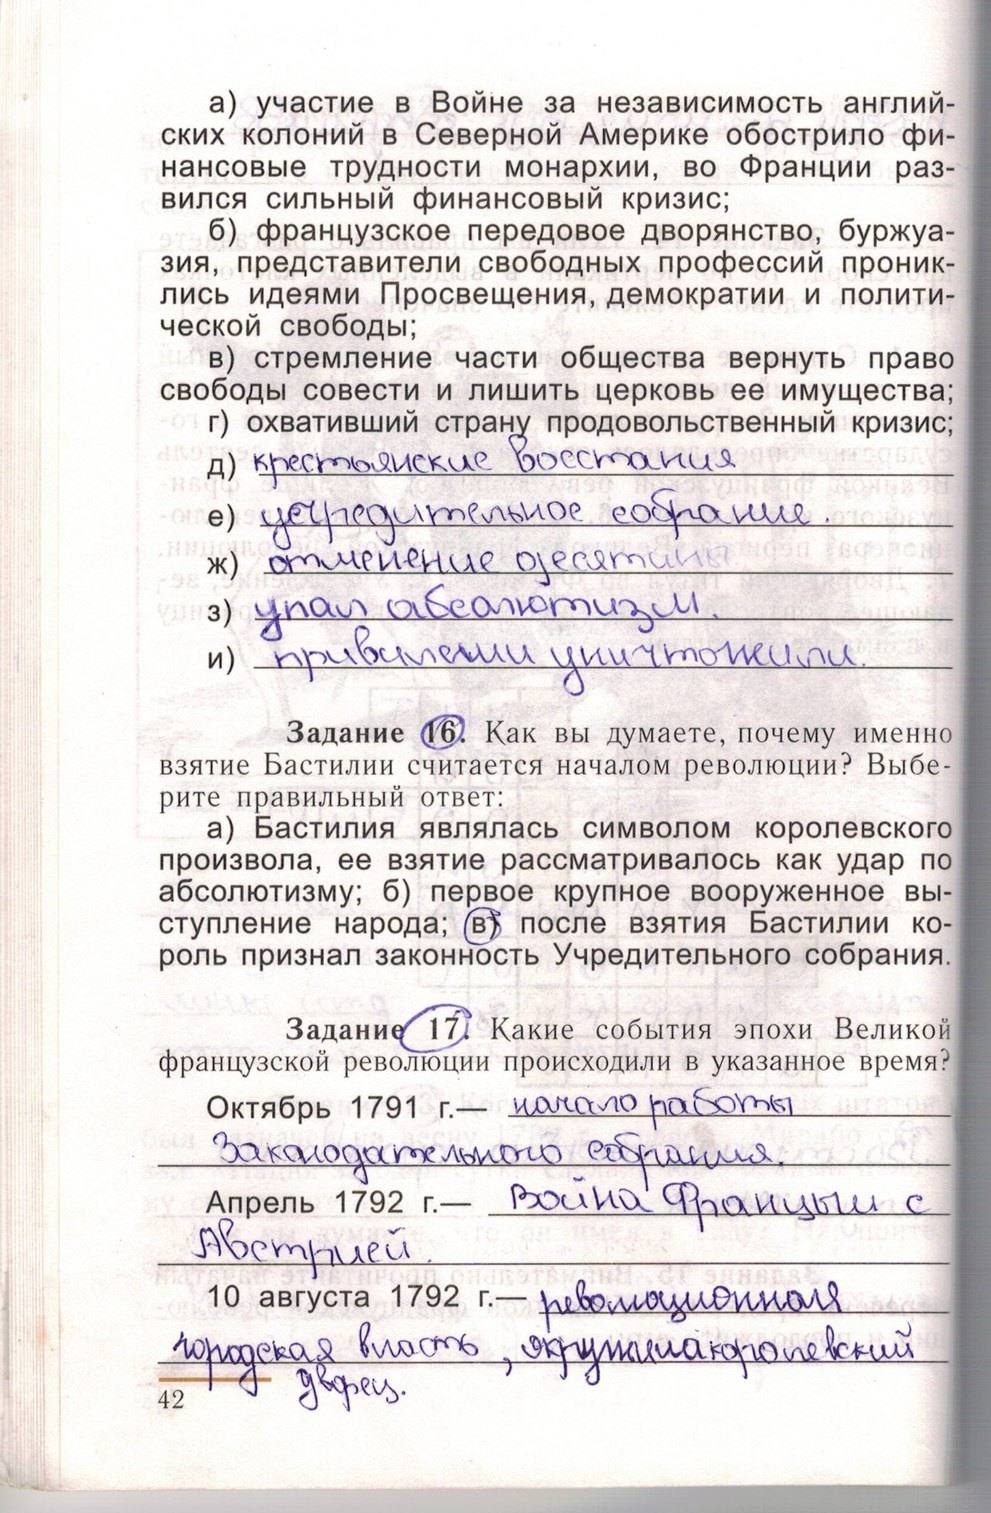 а) участие в Войне за независимость англий-
ских колоний в Северной Америке обострило фи-
нансовые трудности монархии, во Франции раз-
вился сильный финансовый кризис;
б) французское передовое дворянство, буржуа-
зия, представители свободных профессий проник-
лись идеями Просвещения, демократии и полити-
ческой свободы;
в) стремление части общества вернуть право
свободы совести и лишить церковь ее имущества;
г) охвативший страну продовольственный кризис;
д) крестьянские восстания
е) учредительное собрание.
ж) отменение десятины
з) упал абсалютизм.
и) привилегии уничтожили.
Задание 16. Как вы думаете, почему именно
взятие Бастилии считается началом революции? Выбе-
рите правильный ответ:
а) Бастилия являлась символом королевского
произвола, ее взятие рассматривалось как удар по
абсолютизму; б) первое крупное вооруженное вы-
ступление народа; в) после взятия Бастилии ко-
роль признал законность Учредительного собрания.
Задание 17. Какие события эпохи Великой
французской революции происходили в указанное время?
Октябрь 1791 г.— начало работы
Законодательного собрания.
Апрель 1792 г.— Война Франции с
Австрией.
10 августа 1792 г.— революционная
городская власть, окружила королевский
дворец.
42